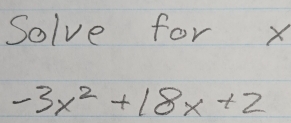 Solve for x
-3x² +18x +2